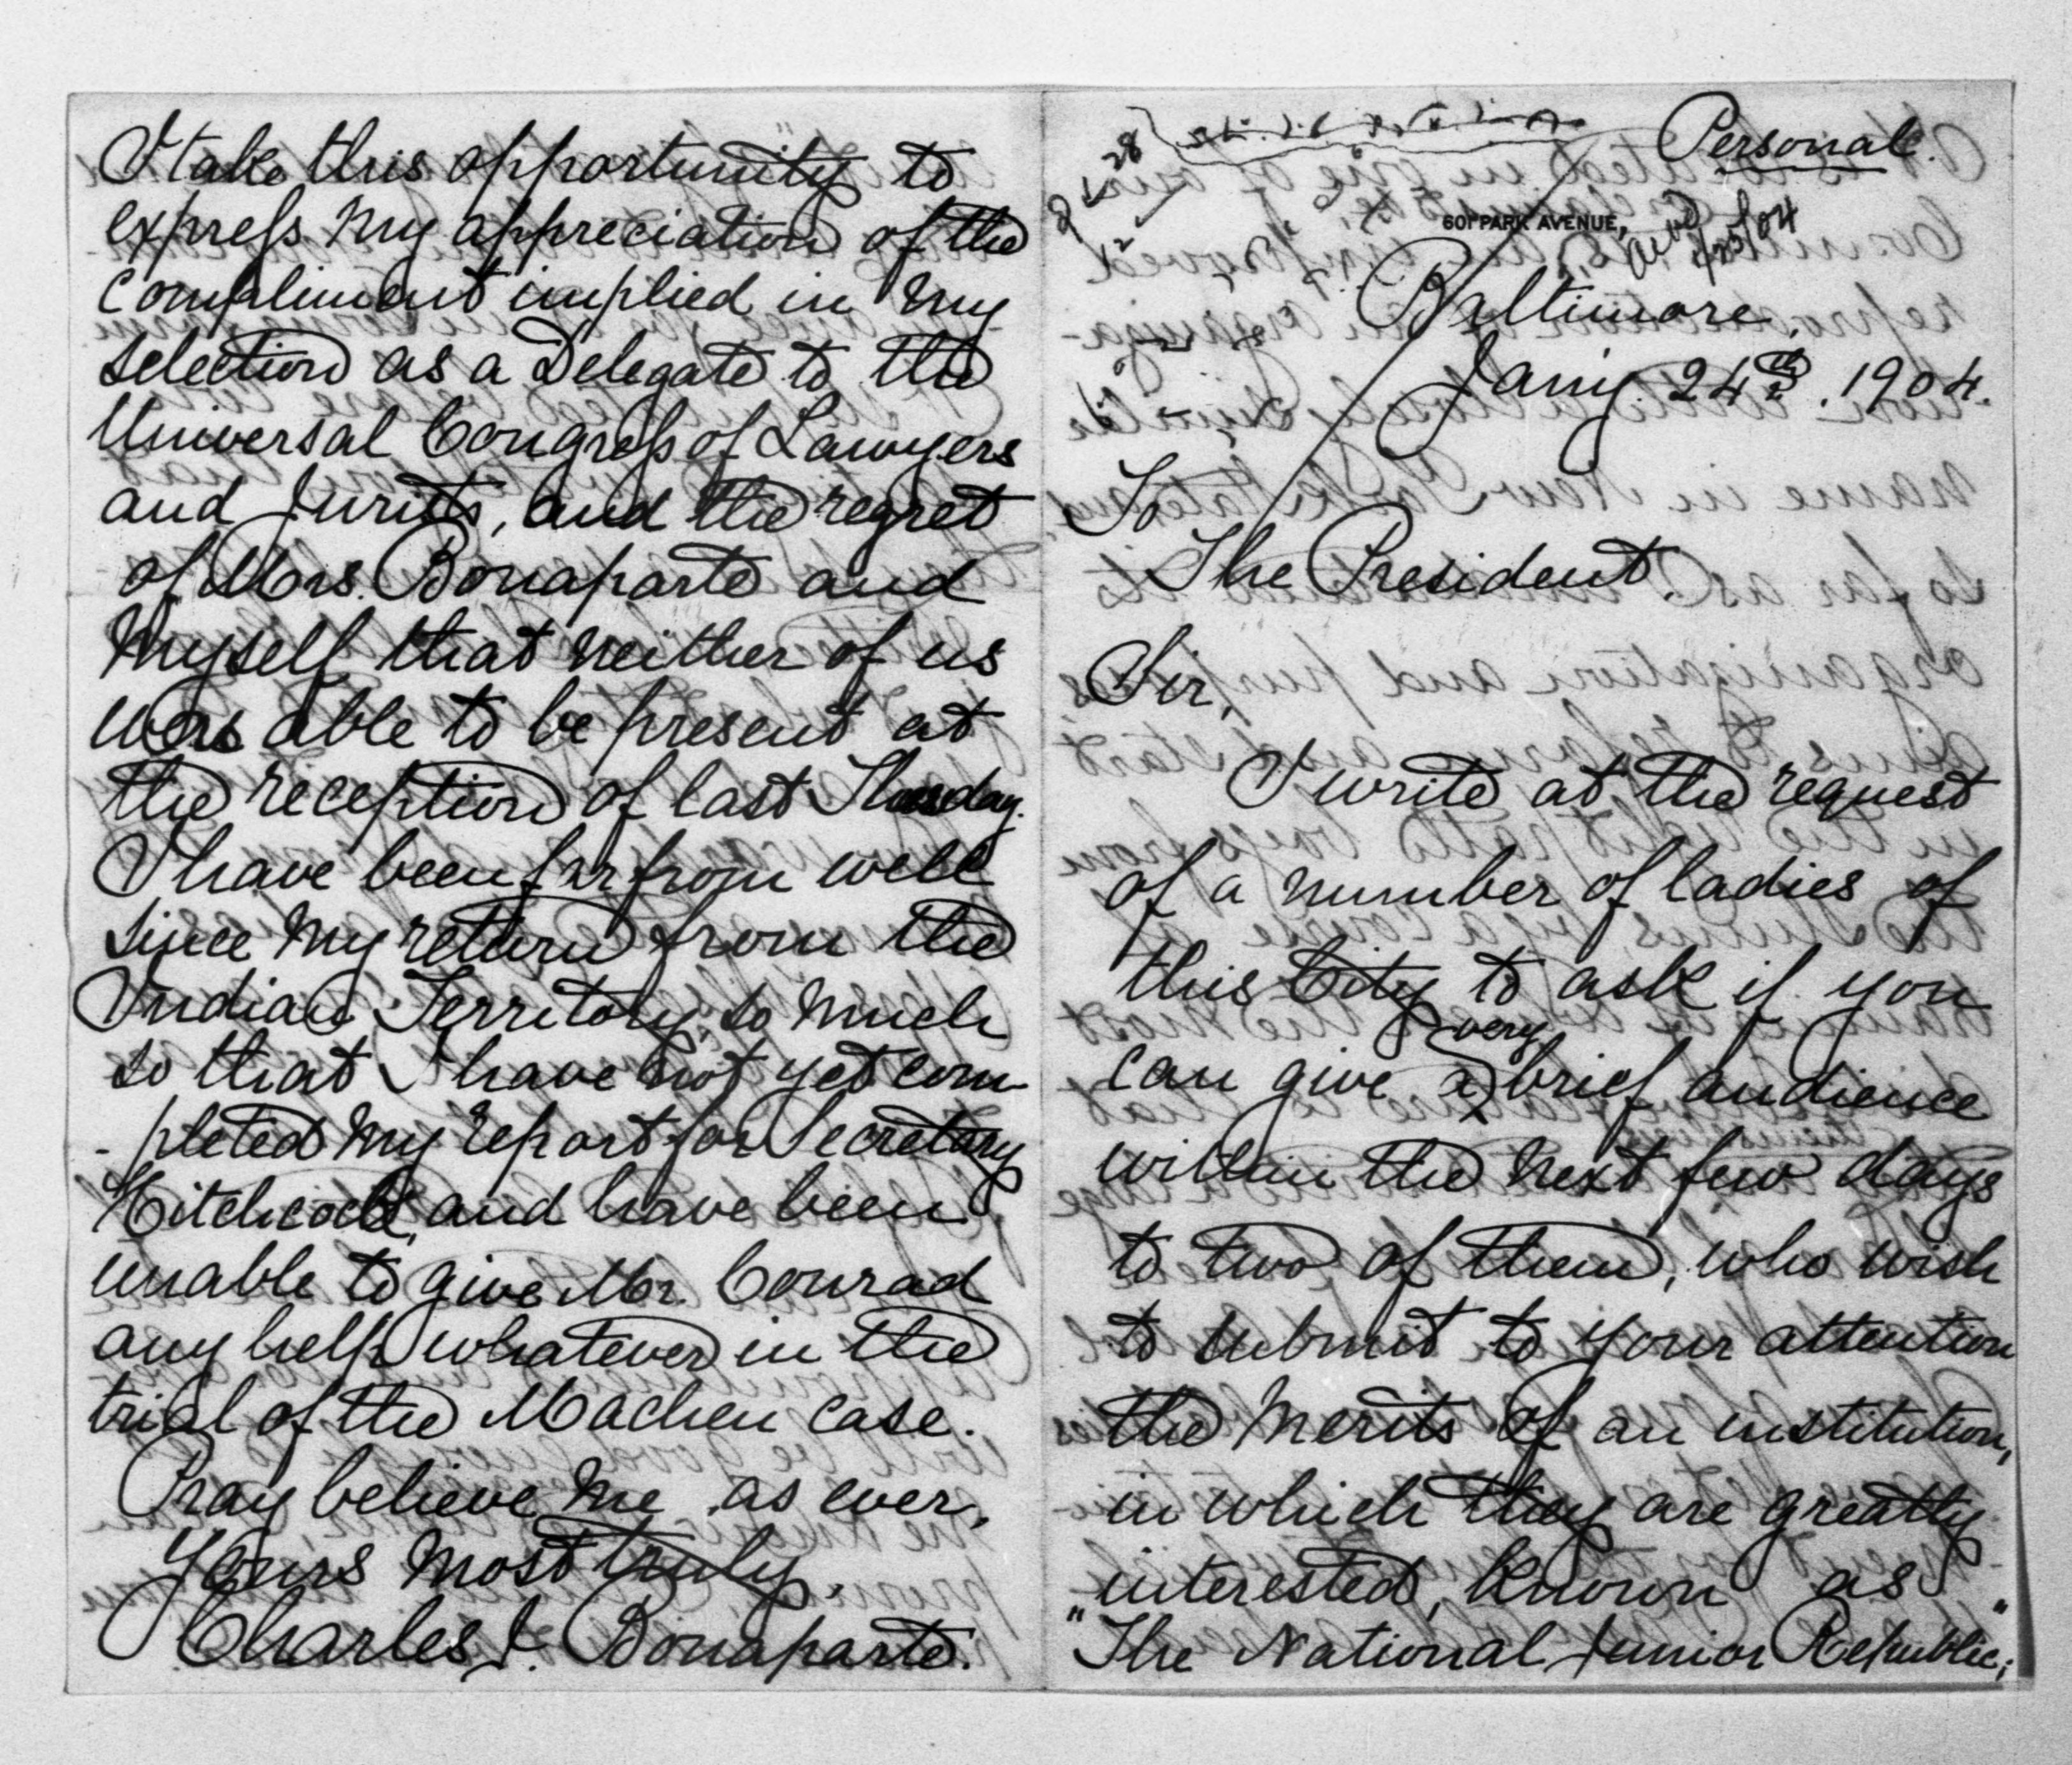 Personal.
601 PARK AVENUE,
ackd
1/25/04
Baltimore,
Jany. 24th. 1904.
To
The President.
Sir,
I write at the request
of a number of ladies of
this City to ask if you
can give a very brief audience
within the next few days
to two of them, who wish
to submit to your attention
the merits of an institution,
in which they are greatly
interested, known as
"The National Junior Republic";
I take this opportunity to
express my appreciation of the
compliment implied in my
selection as a Delegate to the
Universal Congress of Lawyers
and Jurists, and the regret
of Mrs. Bonaparte and
myself that neither of us
was able to be present at
the reception of last
I have been far from well
since my return from the
Indian Territory, so much
so that I have not yet com-
-pleted my report for Secretary
Hitchcock, and have been
unable to give Mr. Conrad
any help whatever in the
trial of the Machen case.
Pray believe me, as ever,
Yours most truly,
Charles J. Bonaparte.